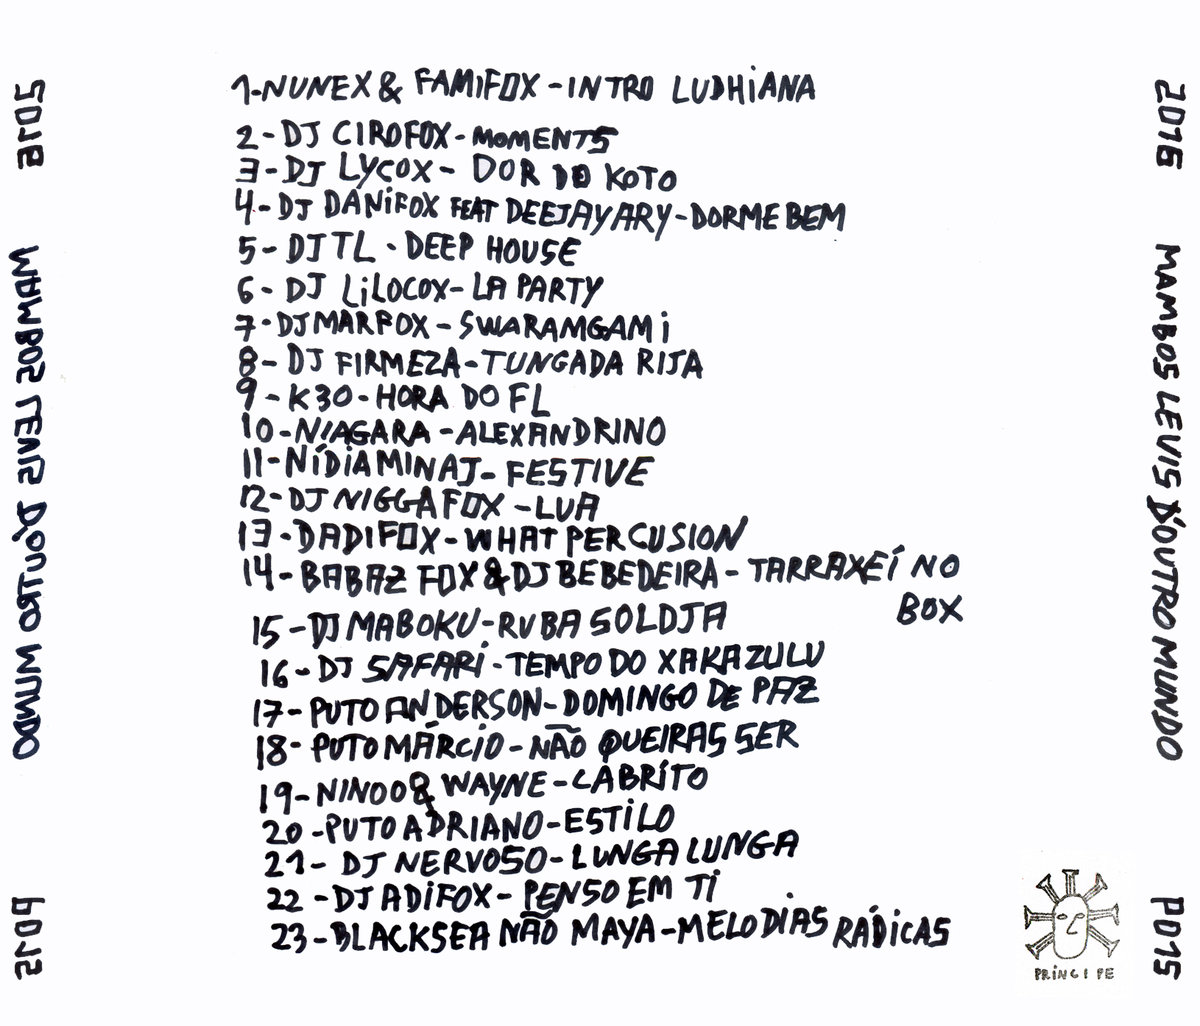 1-NUNEX & FAMIFOX-INTRO LUDHiANA
2-DJ CIROFOX-MOMENTS
3-DJ LYCOX- DOR DO KOTO
4-DJ DANiFOX FEAT DEEJAYARY-DORME BEM
5-DJ TL-DEEP HOUSE
6-DJ LiLOCOX-LA PARTY
7-DJ MARFOX-SWARAMGAMi
8-DJ FIRMEZA-TUNGADA RIJA
9-K30-HORA DO FL
10-NIAGARA-ALEXANDRINO
11-NÍDiA MINAJ-FESTIVE
12-DJ NIGGA FOX-LUA
13-DADIFOX-WHAT PERCUSION
14-BABAZ FOX & DJ BEBEDEIRA-TARRAXEÍ NO
BOX
15-DJ MABOKU-RVBA SOLDJA
16-DJ SAFARi-TEMPO DO XAKAZULU
17-PUTO ANDERSON-DOMINGO DE PAZ
18-PUTO MÁRCiO-NÃO QUEIRAS SER
19-NINOO & WAYNE-CABRÍTO
20-PUTO ADRIANO-ESTiLO
21-DJ NERVOSO-LUNGA LUNGA
22-DJ ADiFOX-PENSO EM Ti
23-BLACKSEA NÃO MAYA-MELODiAS RÁDiCAS
2016 MAMBOS LEVIS D'OUTRO MUNDO P015
2016 MAMBOS LEVIS D'OUTRO MUNDO P015
PRÍNCIPE